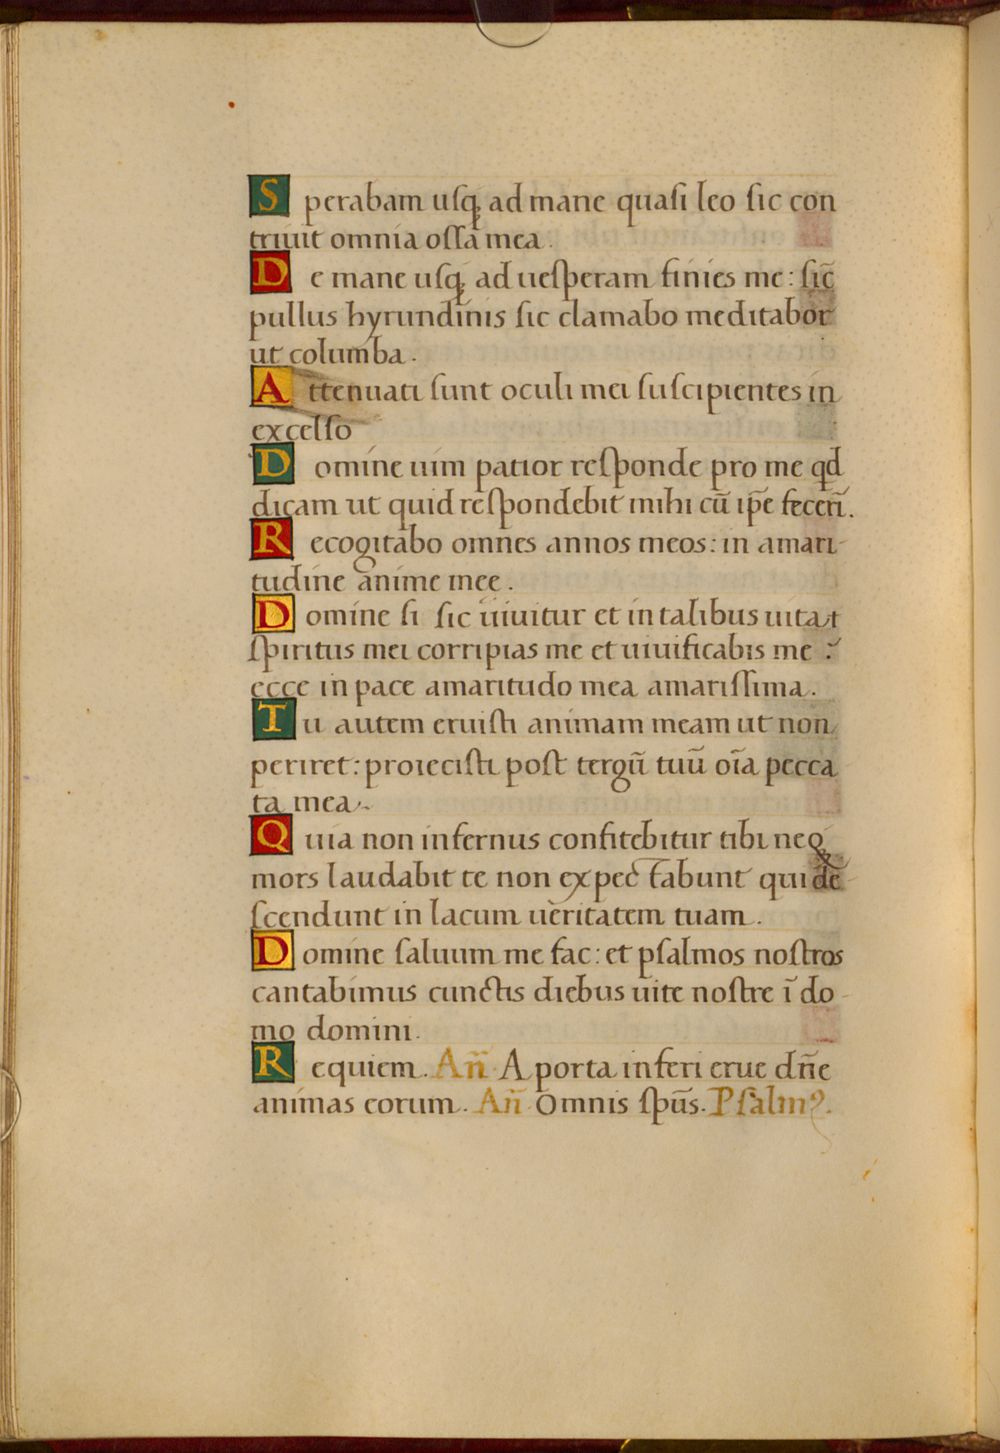 Sperabam usq; ad mane quasi leo sic con
triuit omnia ossa mea.
De mane usq; ad uesperam finies me: sic̄
pullus hyrundinis sic clamabo meditabor
ut columba.
Attenuati sunt oculi mei suscipientes in
excelso
Domine uim patior responde pro me qd
dicam ut quid respondebit mihi cū ip̄e fecerī.
Recogitabo omnes annos meos: in amari-
tudine anime mee.
Domine si sic uiuitur et in talibus uita
spiritus mei corripias me et uiuificabis me:
ecce in pace amaritudo mea amarissima.
Tu autem eruisti animam meam ut non
periret: proiecisti post tergū tuū oīa pecca
ta mea.
Quia non infernus confitebitur tibi neq;
mors laudabit te non expectabunt qui de
scendunt in lacum ueritatem tuam.
Domine saluum me fac: et psalmos nostros
cantabimus cunctis diebus uite nostre ī do-
mo domini.
Requiem. An̄ A porta inferi erue dn̄e
animas eorum. An̄ Omnis spūs. Psalmꝰ.